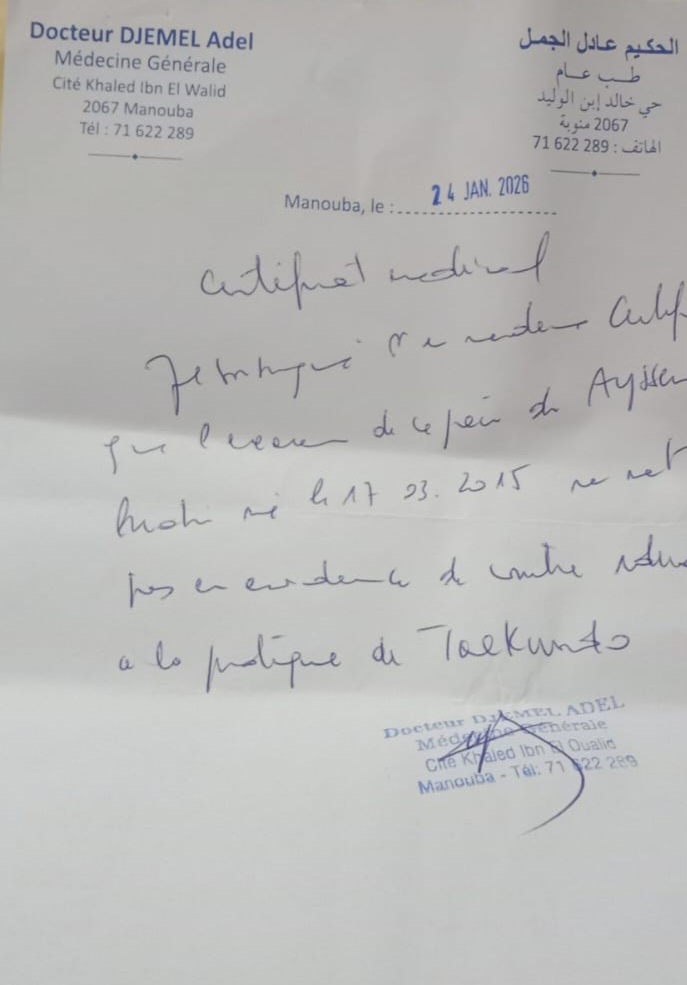 Docteur DJEMEL Adel
Médecine Générale
Cité Khaled Ibn El Walid
2067 Manouba
Tél : 71 622 289
الحكيم عادل الجمل
طب عام
حي خالد إبن الوليد
2067 منوبة
الهاتف : 289 622 71
Manouba, le : 24 JAN. 2026
Certificat medical
Je
que l'examen de ce jour de
né le 17 03. 2015 ne met
pas en evidence de contre
a la pratique de Taekwndo
Docteur DJEMEL ADEL
Médecine Générale
Cité Khaled Ibn El Oualid
Manouba - Tél: 71 622 289